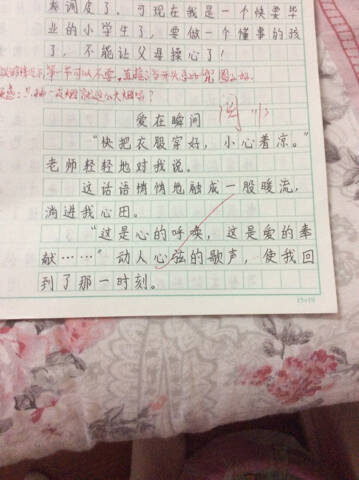 调皮了，可现在我是一个快要毕
业的小学生了，要做一个懂事的孩
了，不能让父母操心了！
第一节可以不要，直接
爱在瞬间
“快把衣服穿好，小心着凉。”
老师轻轻地对我说。
这话语悄悄地融成一股暖流，
淌进我心田。
“这是心的呼唤，这是爱的奉
献……”动人心弦的歌声，使我回
到了那一时刻。